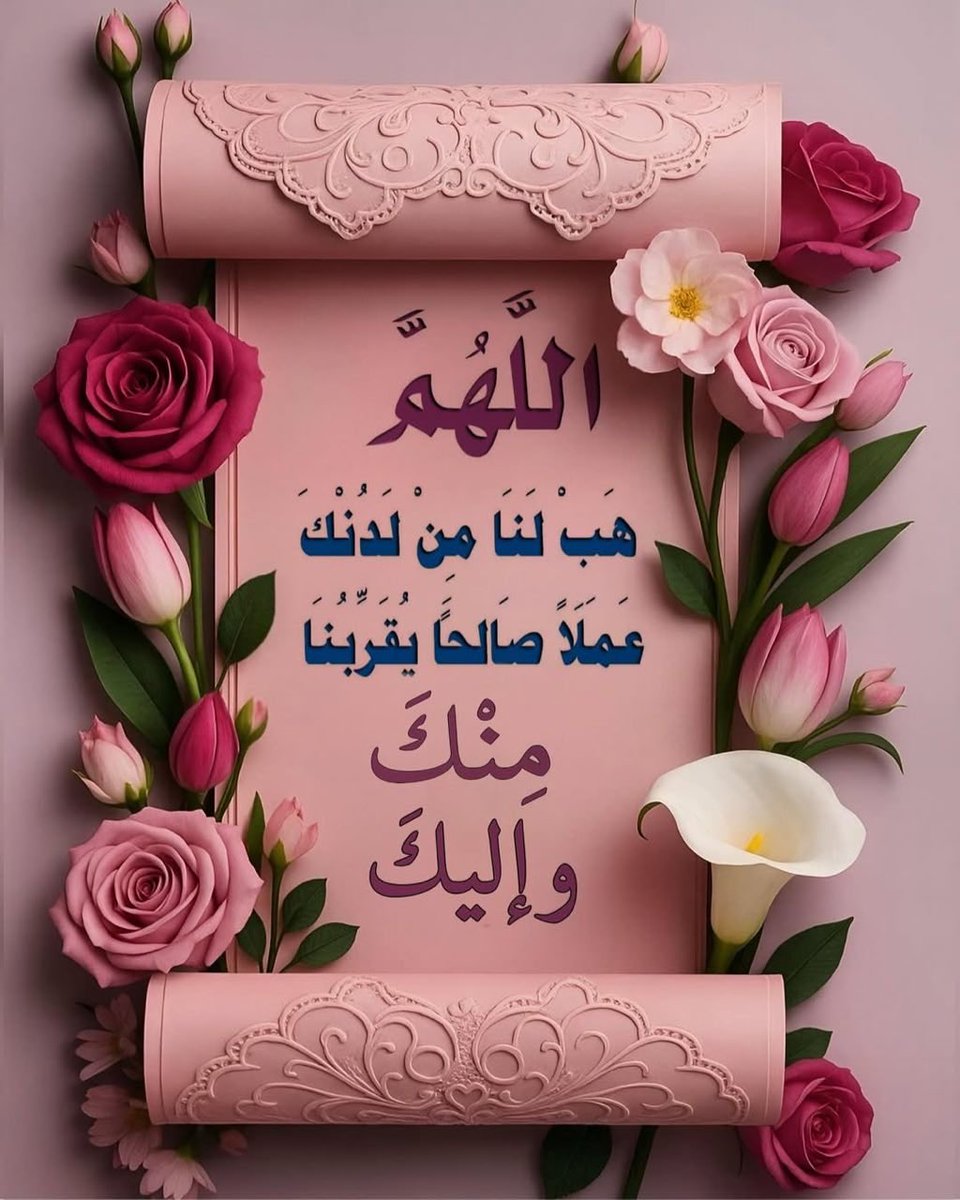 اللَّهُمَّ
هَبْ لَنَا مِنْ لَدُنْكَ
عَمَلَاً صَالحَاً يُقَرِّبُنَا
مِنْكَ
وإليكَ